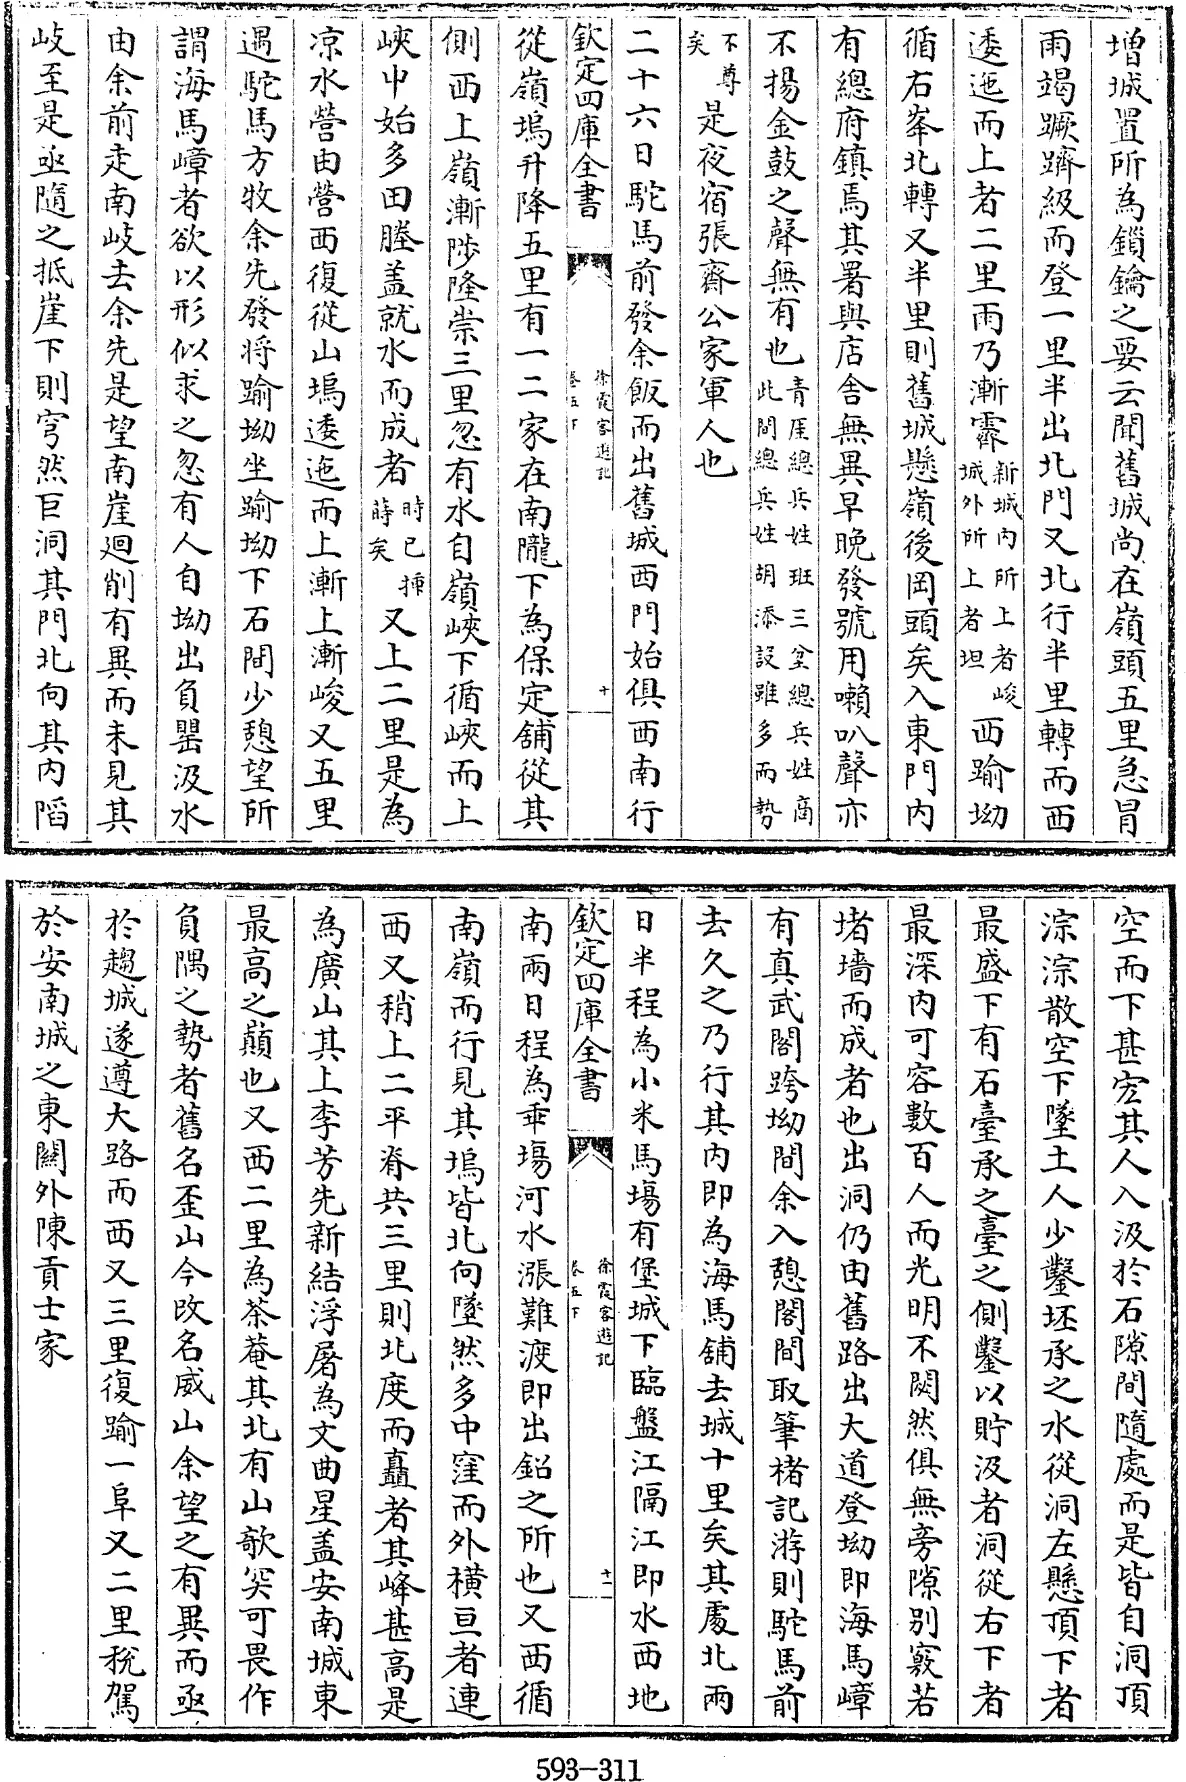 增城置所為鎖鑰之要云聞舊城尚在嶺頭五里急冒
雨竭蹶躋級而登一里半出北門又北行半里轉而西
逶迤而上者二里雨乃漸霽新城内所上者峻城外所上者坦西踰坳
循右峯北轉又半里則舊城懸嶺後岡頭矣入東門内
有總府鎮焉其署與店舍無異早晚發號用喇叭聲亦
不揚金鼓之聲無有也青厓總兵姓班三岔總兵姓商此間總兵姓胡添設雖多而勢
不尊矣是夜宿張齋公家軍人也
二十六日駝馬前發余飯而出舊城西門始俱西南行
欽定四庫全書
徐霞客遊記
卷五下
十
從嶺塢升降五里有一二家在南隴下為保定舖從其
側西上嶺漸陟隆崇三里忽有水自嶺峽下循峽而上
峽中始多田塍盖就水而成者時已揷蒔矣又上二里是為
凉水營由營西復從山塢逶迤而上漸上漸峻又五里
遇駝馬方牧余先發將踰坳坐踰坳下石間少憩望所
謂海馬嶂者欲以形似求之忽有人自坳出負罌汲水
由余前走南岐去余先是望南崖廻削有異而未見其
岐至是亟隨之抵崖下則穹然巨洞其門北向其内陷
空而下甚宏其人入汲於石隙間隨處而是皆自洞頂
淙淙散空下墜土人少鑿坯承之水從洞左懸頂下者
最盛下有石臺承之臺之側鑿以貯汲者洞從右下者
最深内可容數百人而光明不閟然俱無旁隙别竅若
堵墙而成者也出洞仍由舊路出大道登坳即海馬嶂
有真武閣跨坳間余入憩閣間取筆楮記游則駝馬前
去久之乃行其内即為海馬舖去城十里矣其處北兩
日半程為小米馬塲有堡城下臨盤江隔江即水西地
欽定四庫全書
徐霞客遊記
卷五下
十一
南兩日程為乖塲河水漲難渡即出鉛之所也又西循
南嶺而行見其塢皆北向墜然多中窪而外横亘者連
西又稍上二平脊共三里則北度而矗者其峰甚高是
為廣山其上李芳先新結浮屠為文曲星盖安南城東
最高之巔也又西二里為茶菴其北有山欹突可畏作
負隅之勢者舊名歪山今改名威山余望之有異而亟
於趨城遂遵大路而西又三里復踰一阜又二里稅駕
於安南城之東關外陳貢士家
593-311